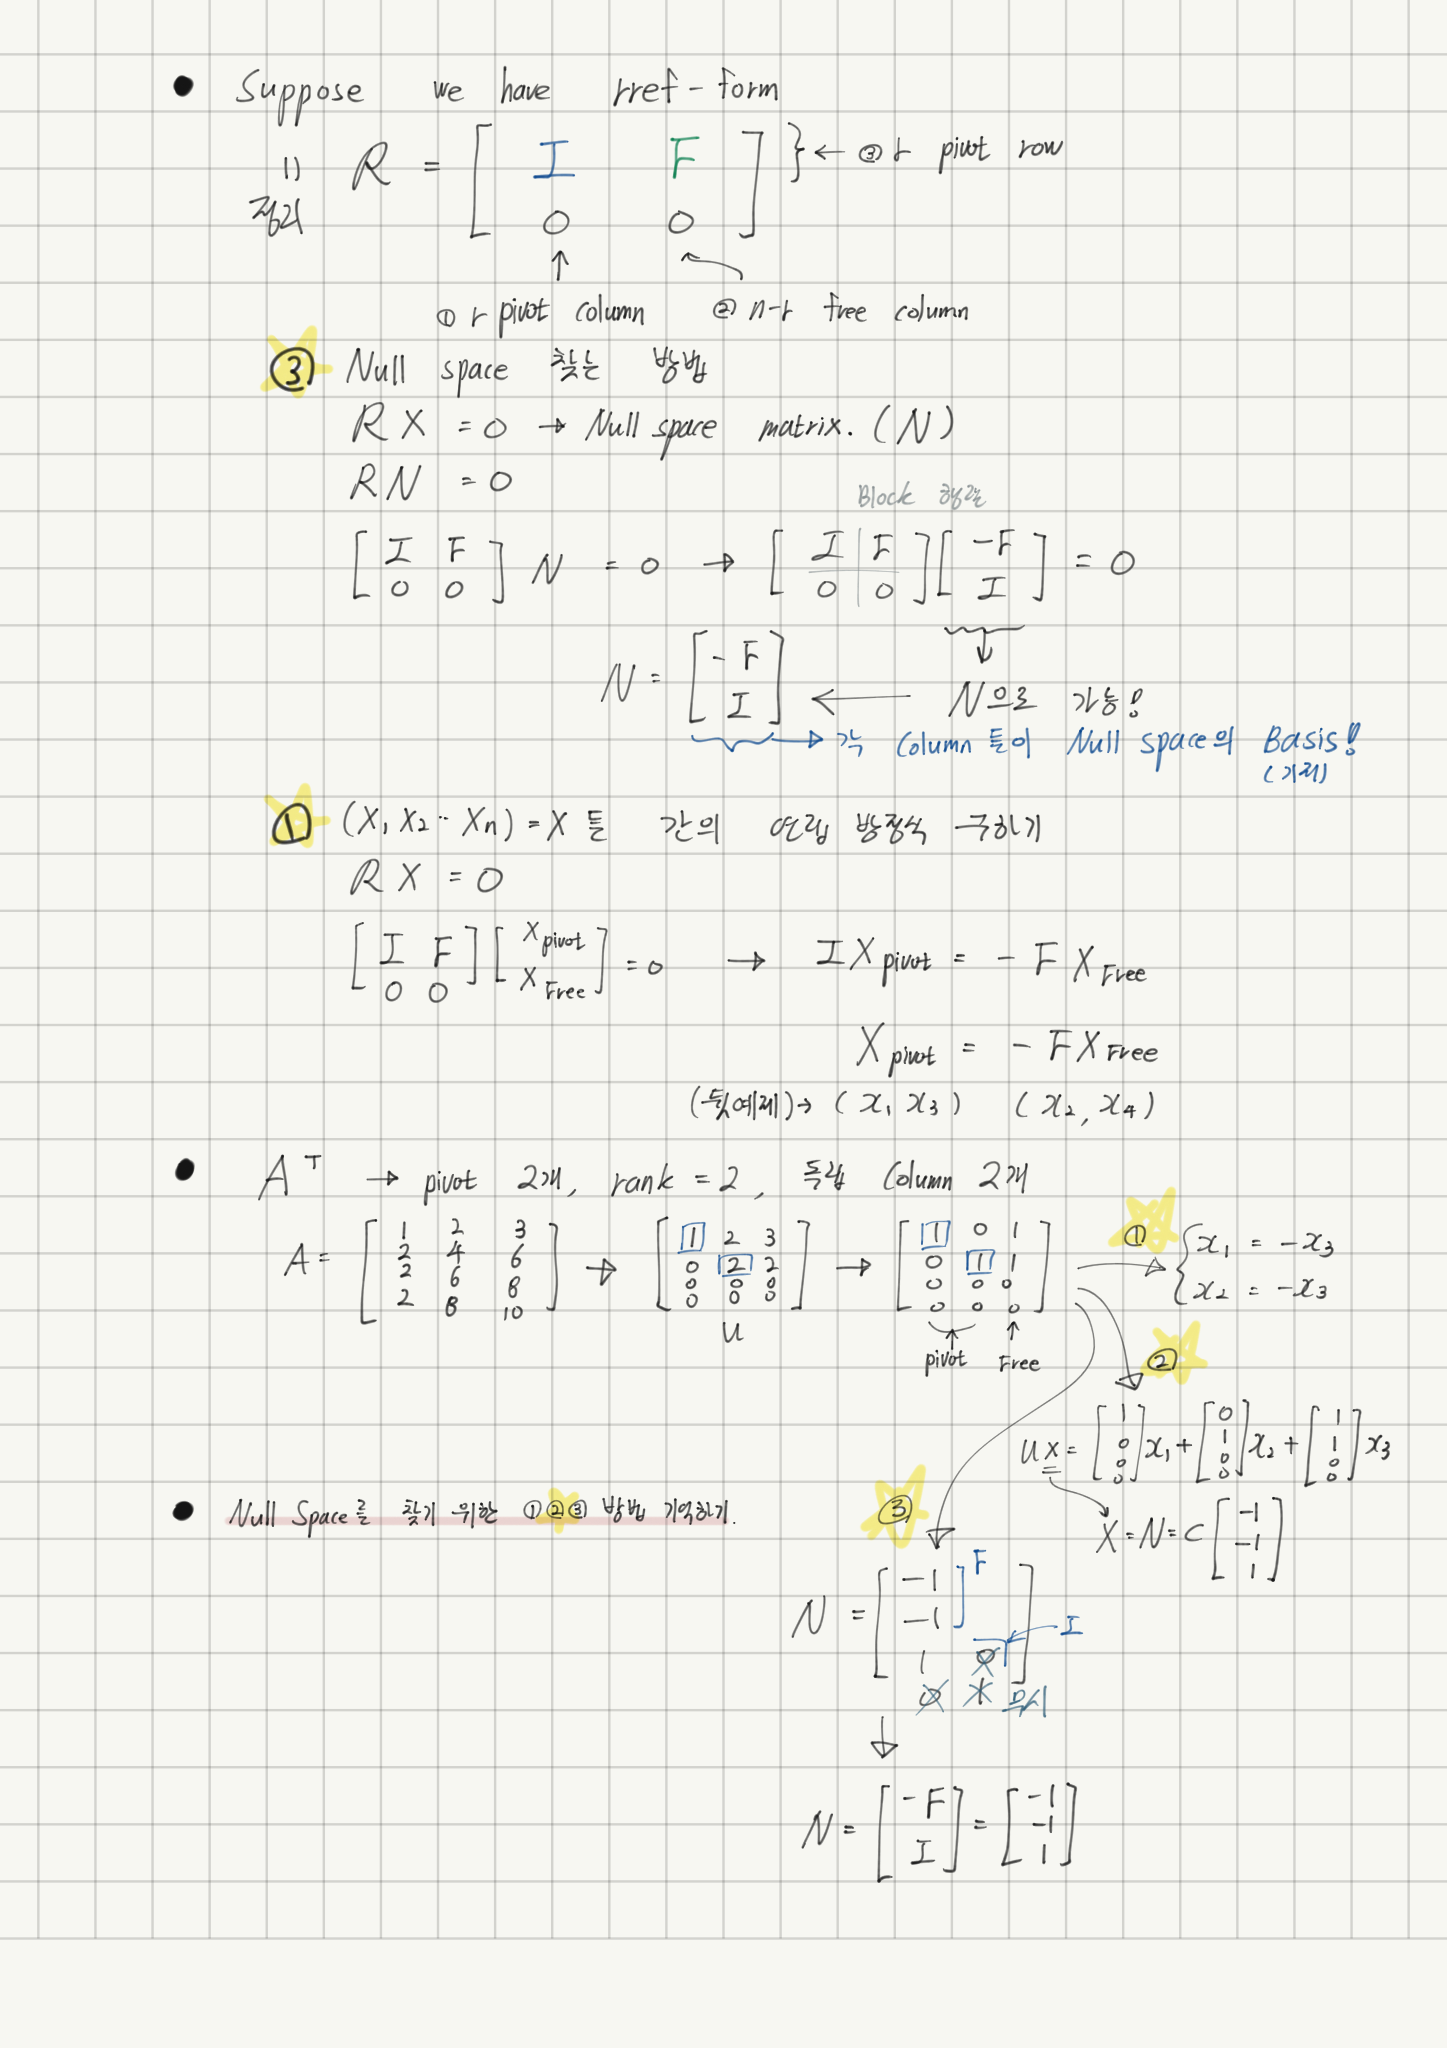 ● Suppose we have rref-form
정리 R = [ I F ; 0 0 ] } ← ③ r pivot row
① r pivot column ② n-r free column
③ Null space 찾는 방법
RX = 0 → Null space matrix. (N)
RN = 0
Block 행렬
[ I F ; 0 0 ] N = 0 → [ I F ; 0 0 ] [ -F ; I ] = 0
N = [ -F ; I ] ← N으로 가능!
→ 각 column 들이 Null space의 Basis!
(기저)
① (X₁ X₂ ·· Xn) = X 들 간의 연립 방정식 구하기
RX = 0
[ I F ; 0 0 ] [ X pivot ; X Free ] = 0 → I X pivot = - F X Free
X pivot = - F X Free
(윗예제) → (x₁ x₃) (x₂, x₄)
● Aᵀ → pivot 2개, rank = 2, 독립 Column 2개
A = [ 1 2 3 ; 2 4 6 ; 2 6 8 ; 2 8 10 ] → [ 1 2 3 ; 0 2 2 ; 0 0 0 ; 0 0 0 ] → [ 1 0 1 ; 0 1 1 ; 0 0 0 ; 0 0 0 ] ① { x₁ = -x₃
x₂ = -x₃
U
pivot Free
②
Ux = [ 1 ; 0 ; 0 ; 0 ] x₁ + [ 0 ; 1 ; 0 ; 0 ] x₂ + [ 1 ; 1 ; 0 ; 0 ] x₃
● Null Space를 찾기 위한 ①②③ 방법 기억하기.
③
X = N = C [ -1 ; -1 ; 1 ]
N = [ -1 ; -1 ; 1 0 ] F
I
0 1 무시
N = [ -F ; I ] = [ -1 ; -1 ; 1 ]